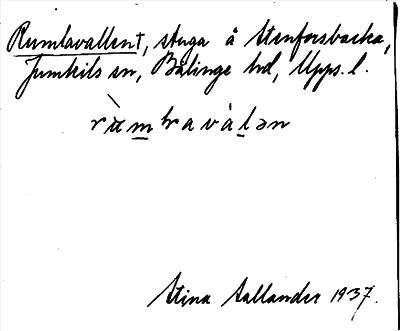 Rumlavallen†, stuga å Stenforsbacka,
Jumkils sn, Bälinge hd, Upps. l.
Stina Sallander 1937.